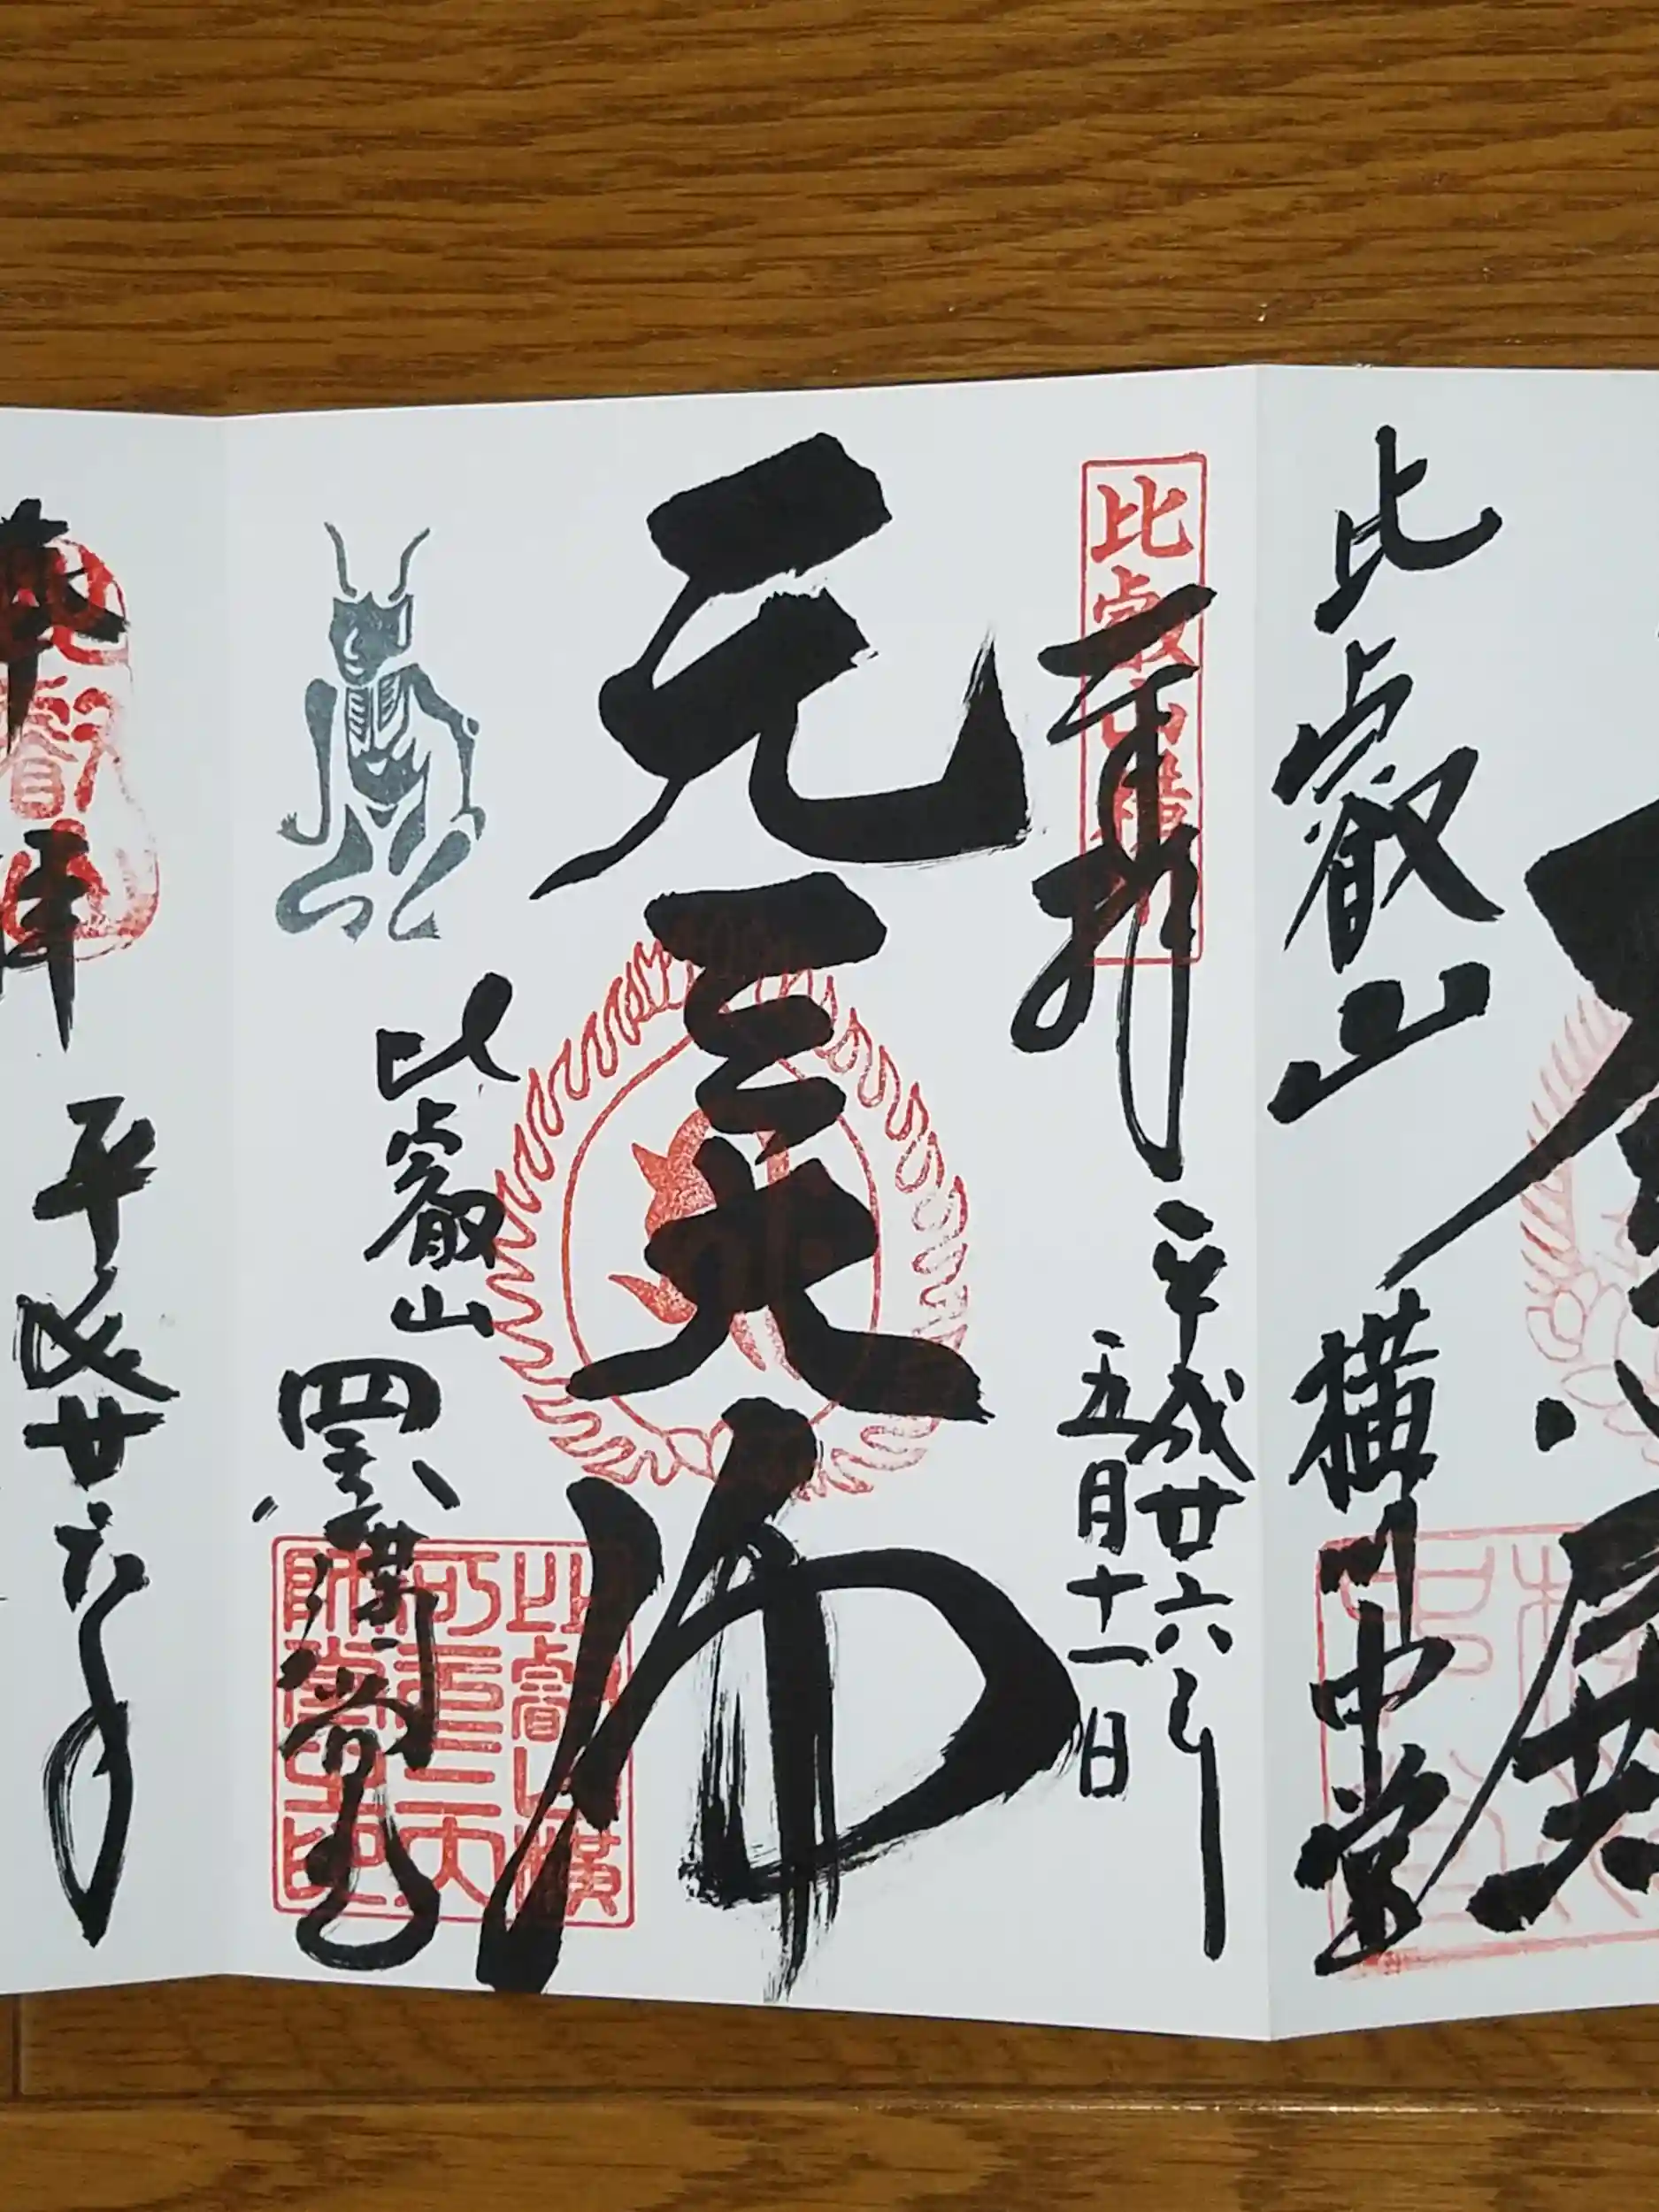 比叡山
横川中堂
比叡山横
奉拝
平成廿六年
五月十一日
元三大師
比叡山
四季講堂
比叡山横
川元三大
師堂之印
奉拝
平成廿六年